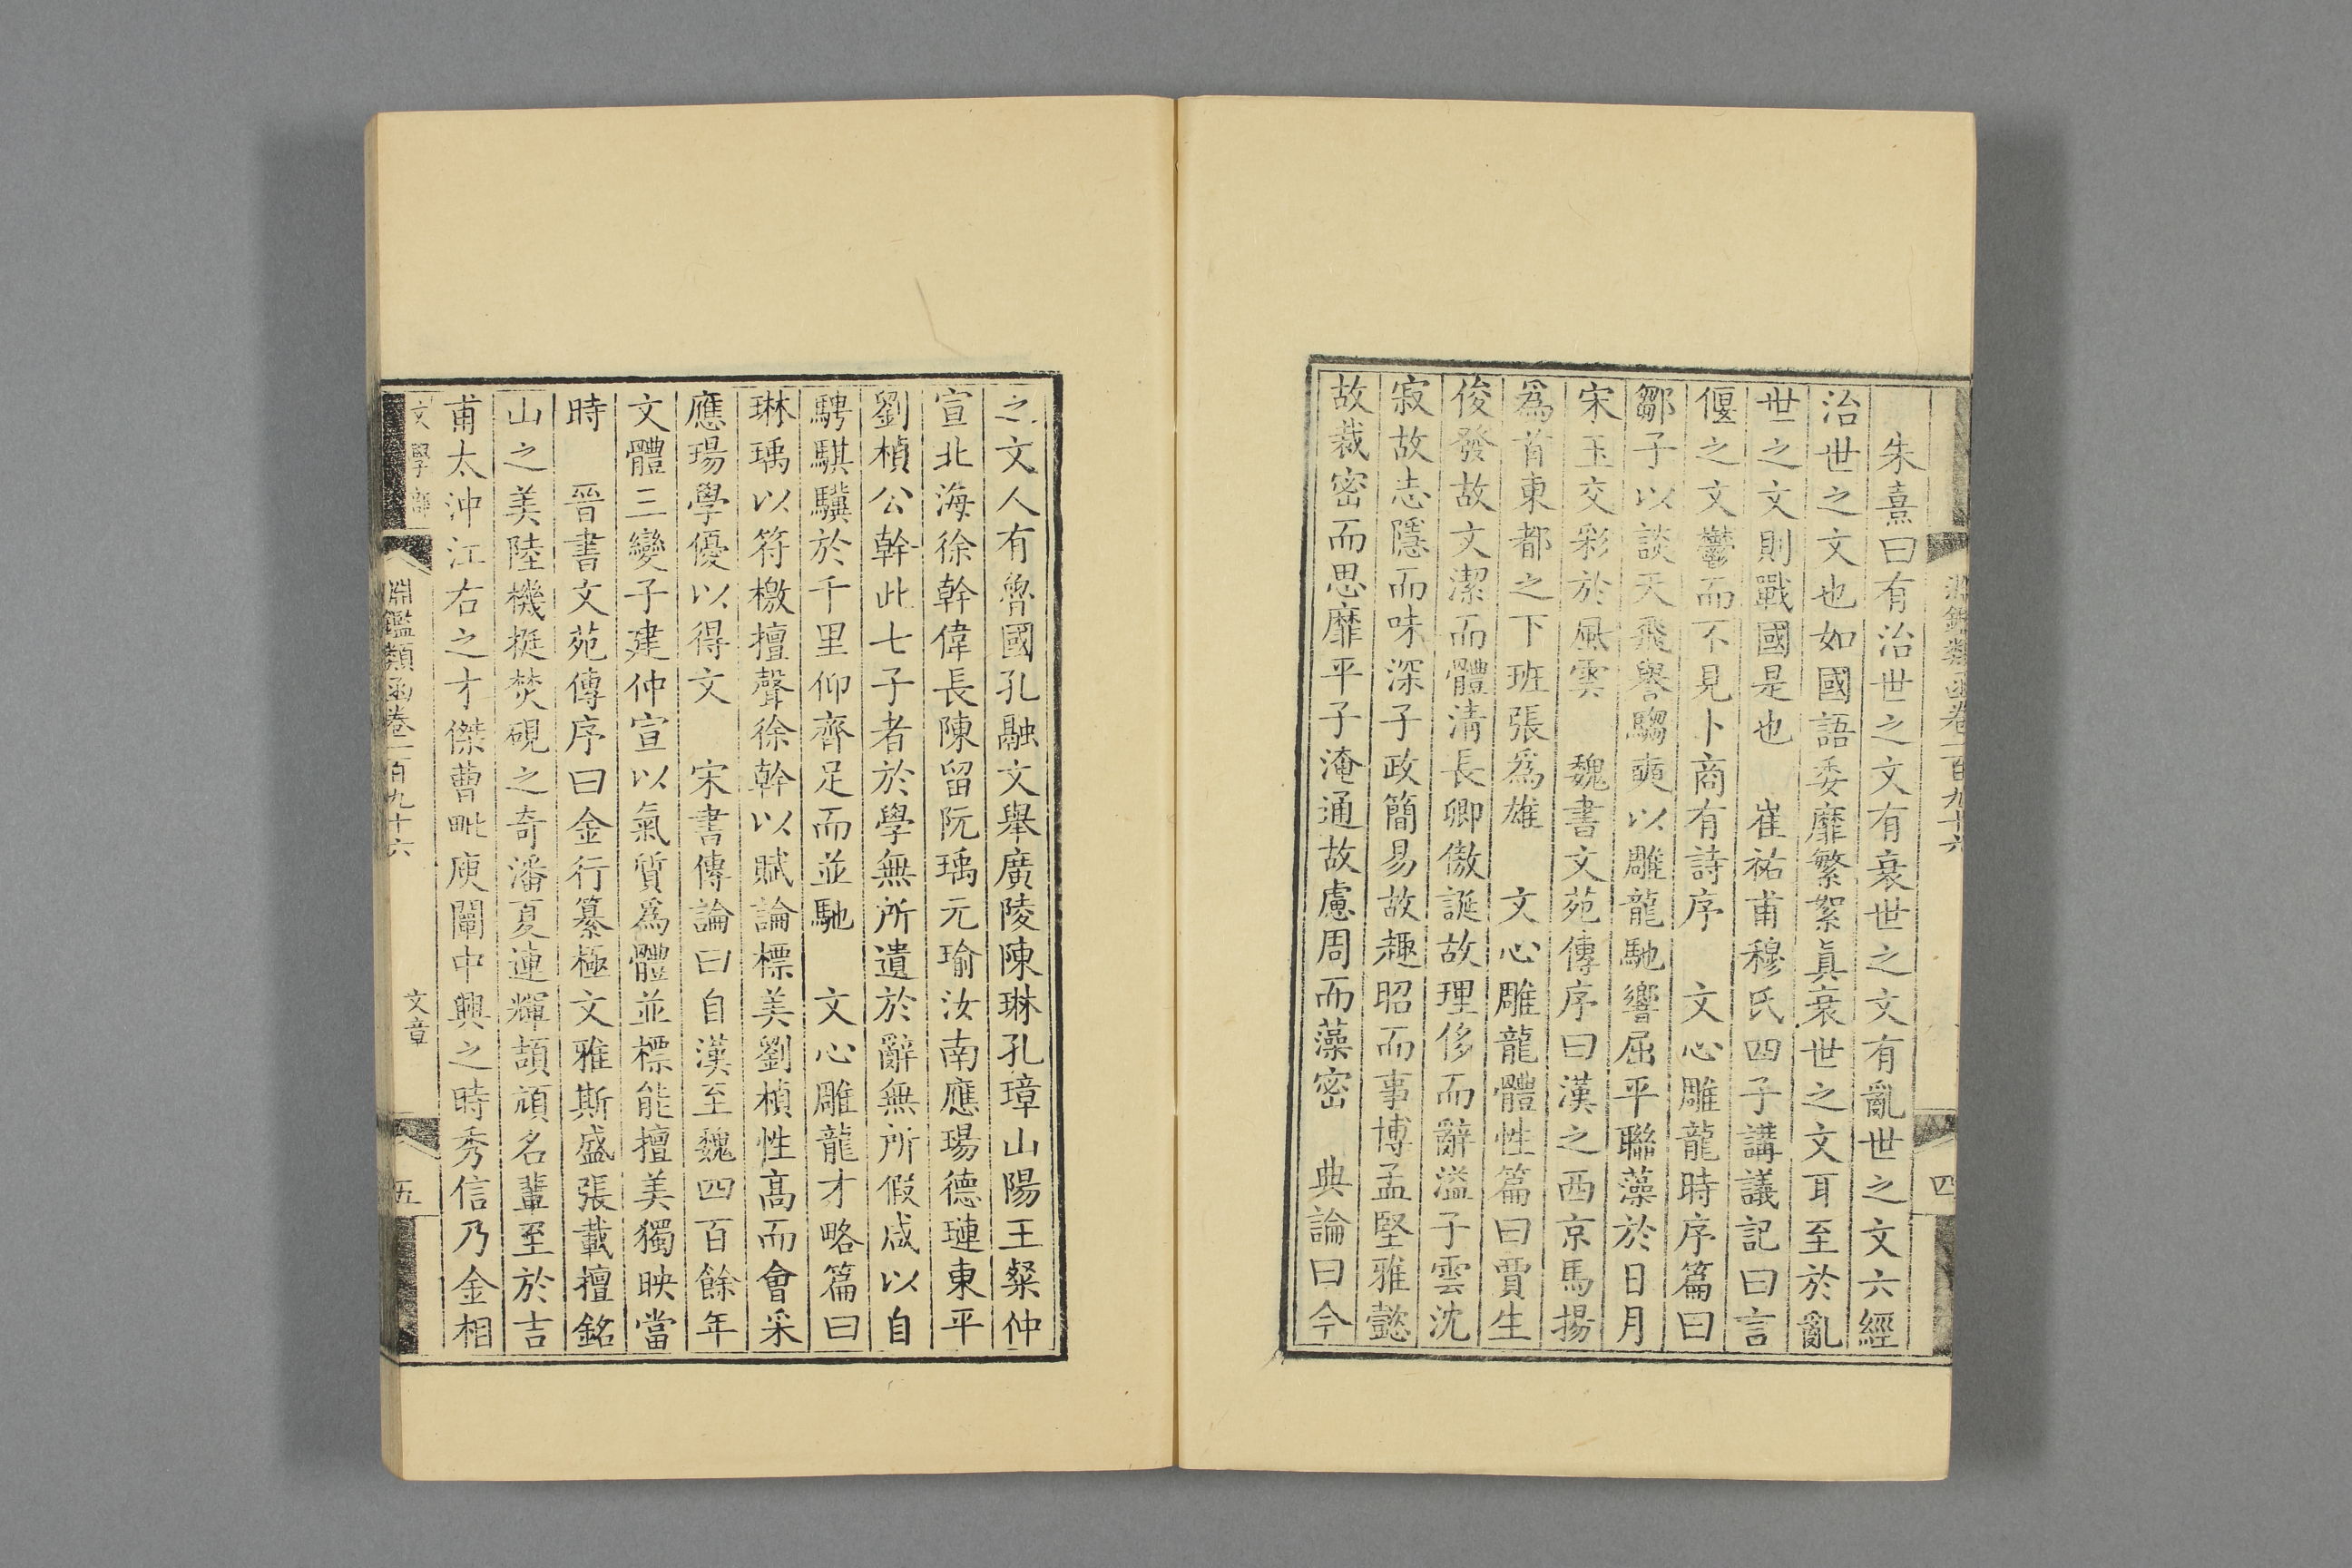 朱熹曰有治世之文有衰世之文有亂世之文六經
治世之文也如國語委靡繁絮眞衰世之文耳至於亂
世之文則戰國是也　崔祐甫穆氏四子講議記曰言
偃之文鬱而不見卜商有詩序　文心雕龍時序篇曰
鄒子以談天飛譽騶奭以雕龍馳響屈平聯藻於日月
宋玉交彩於風雲　魏書文苑傳序曰漢之西京馬揚
爲首東都之下班張爲雄　文心雕龍體性篇曰賈生
俊發故文潔而體淸長卿傲誕故理侈而辭溢子雲沈
寂故志隱而味深子政簡易故趣昭而事博孟堅雅懿
故裁密而思靡平子淹通故慮周而藻密　典論曰今
淵鑑類函卷一百九十六
四
之文人有魯國孔融文舉廣陵陳琳孔璋山陽王粲仲
宣北海徐幹偉長陳留阮瑀元瑜汝南應瑒德璉東平
劉楨公幹此七子者於學無所遺於辭無所假咸以自
騁騏驥於千里仰齊足而並馳　文心雕龍才略篇曰
琳瑀以符檄擅聲徐幹以賦論標美劉楨性高而會采
應瑒學優以得文　宋書傳論曰自漢至魏四百餘年
文體三變子建仲宣以氣質爲體並標能擅美獨映當
時　晉書文苑傳序曰金行纂極文雅斯盛張載擅銘
山之美陸機挺焚硯之奇潘夏連輝頡頏名輩至於吉
甫太沖江右之才傑曹毗庾闡中興之時秀信乃金相
文學部
淵鑑類函卷一百九十六
文章
五